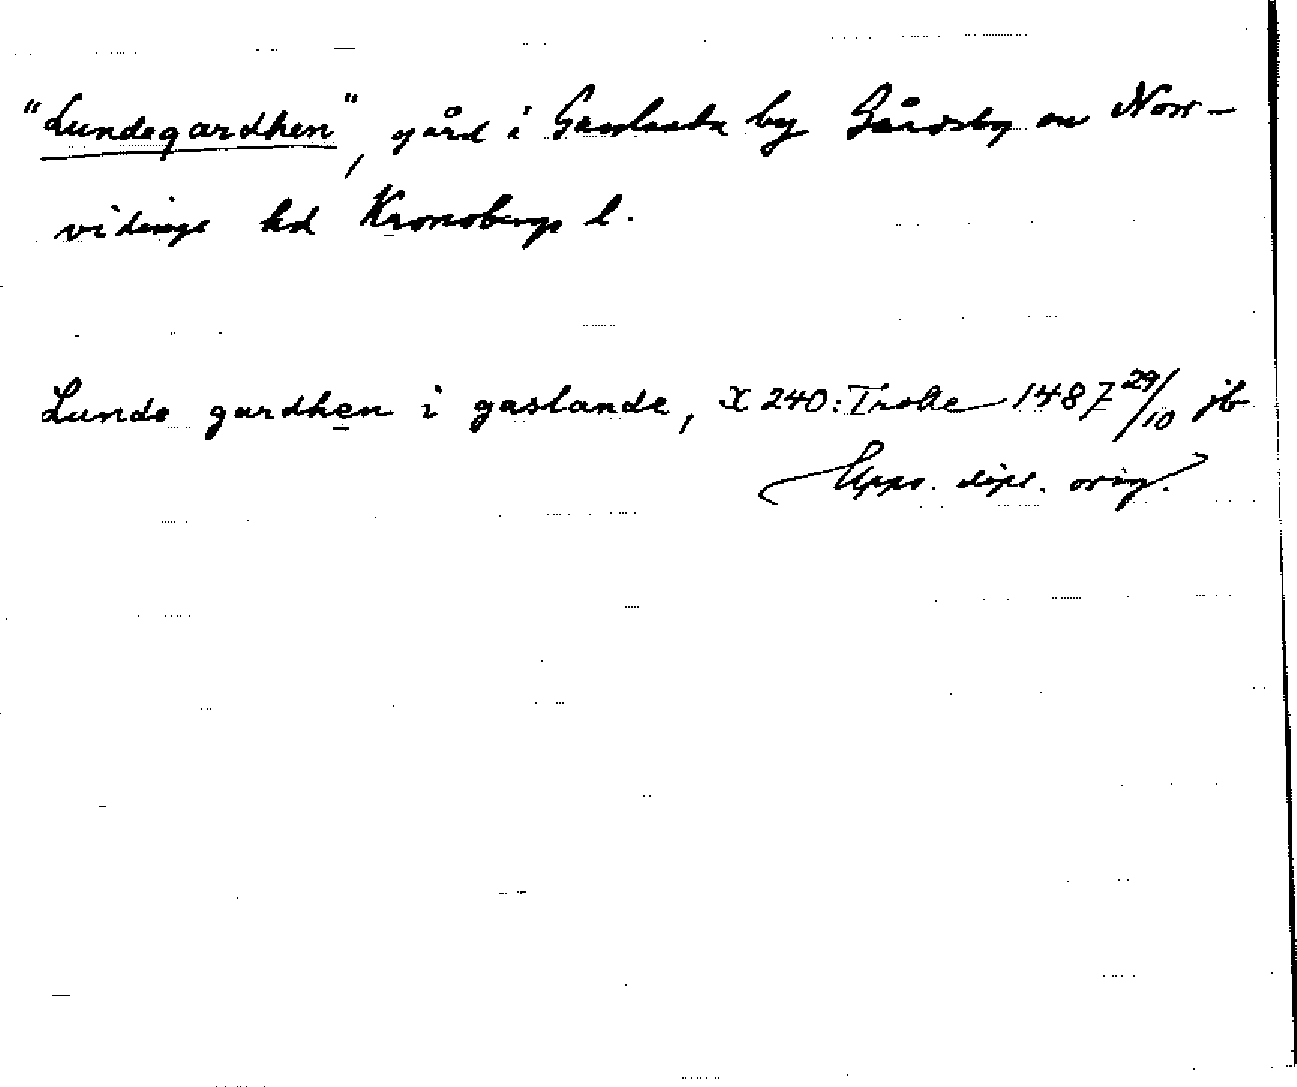 "Lundegardhen", gård i Gasslanda by Gårdsby sn Norr-
vidinge hd Kronobergs l.
Lunde gardhen i gaslande, X 240: 1487 29/10 jb
Upps. dipl. orig.